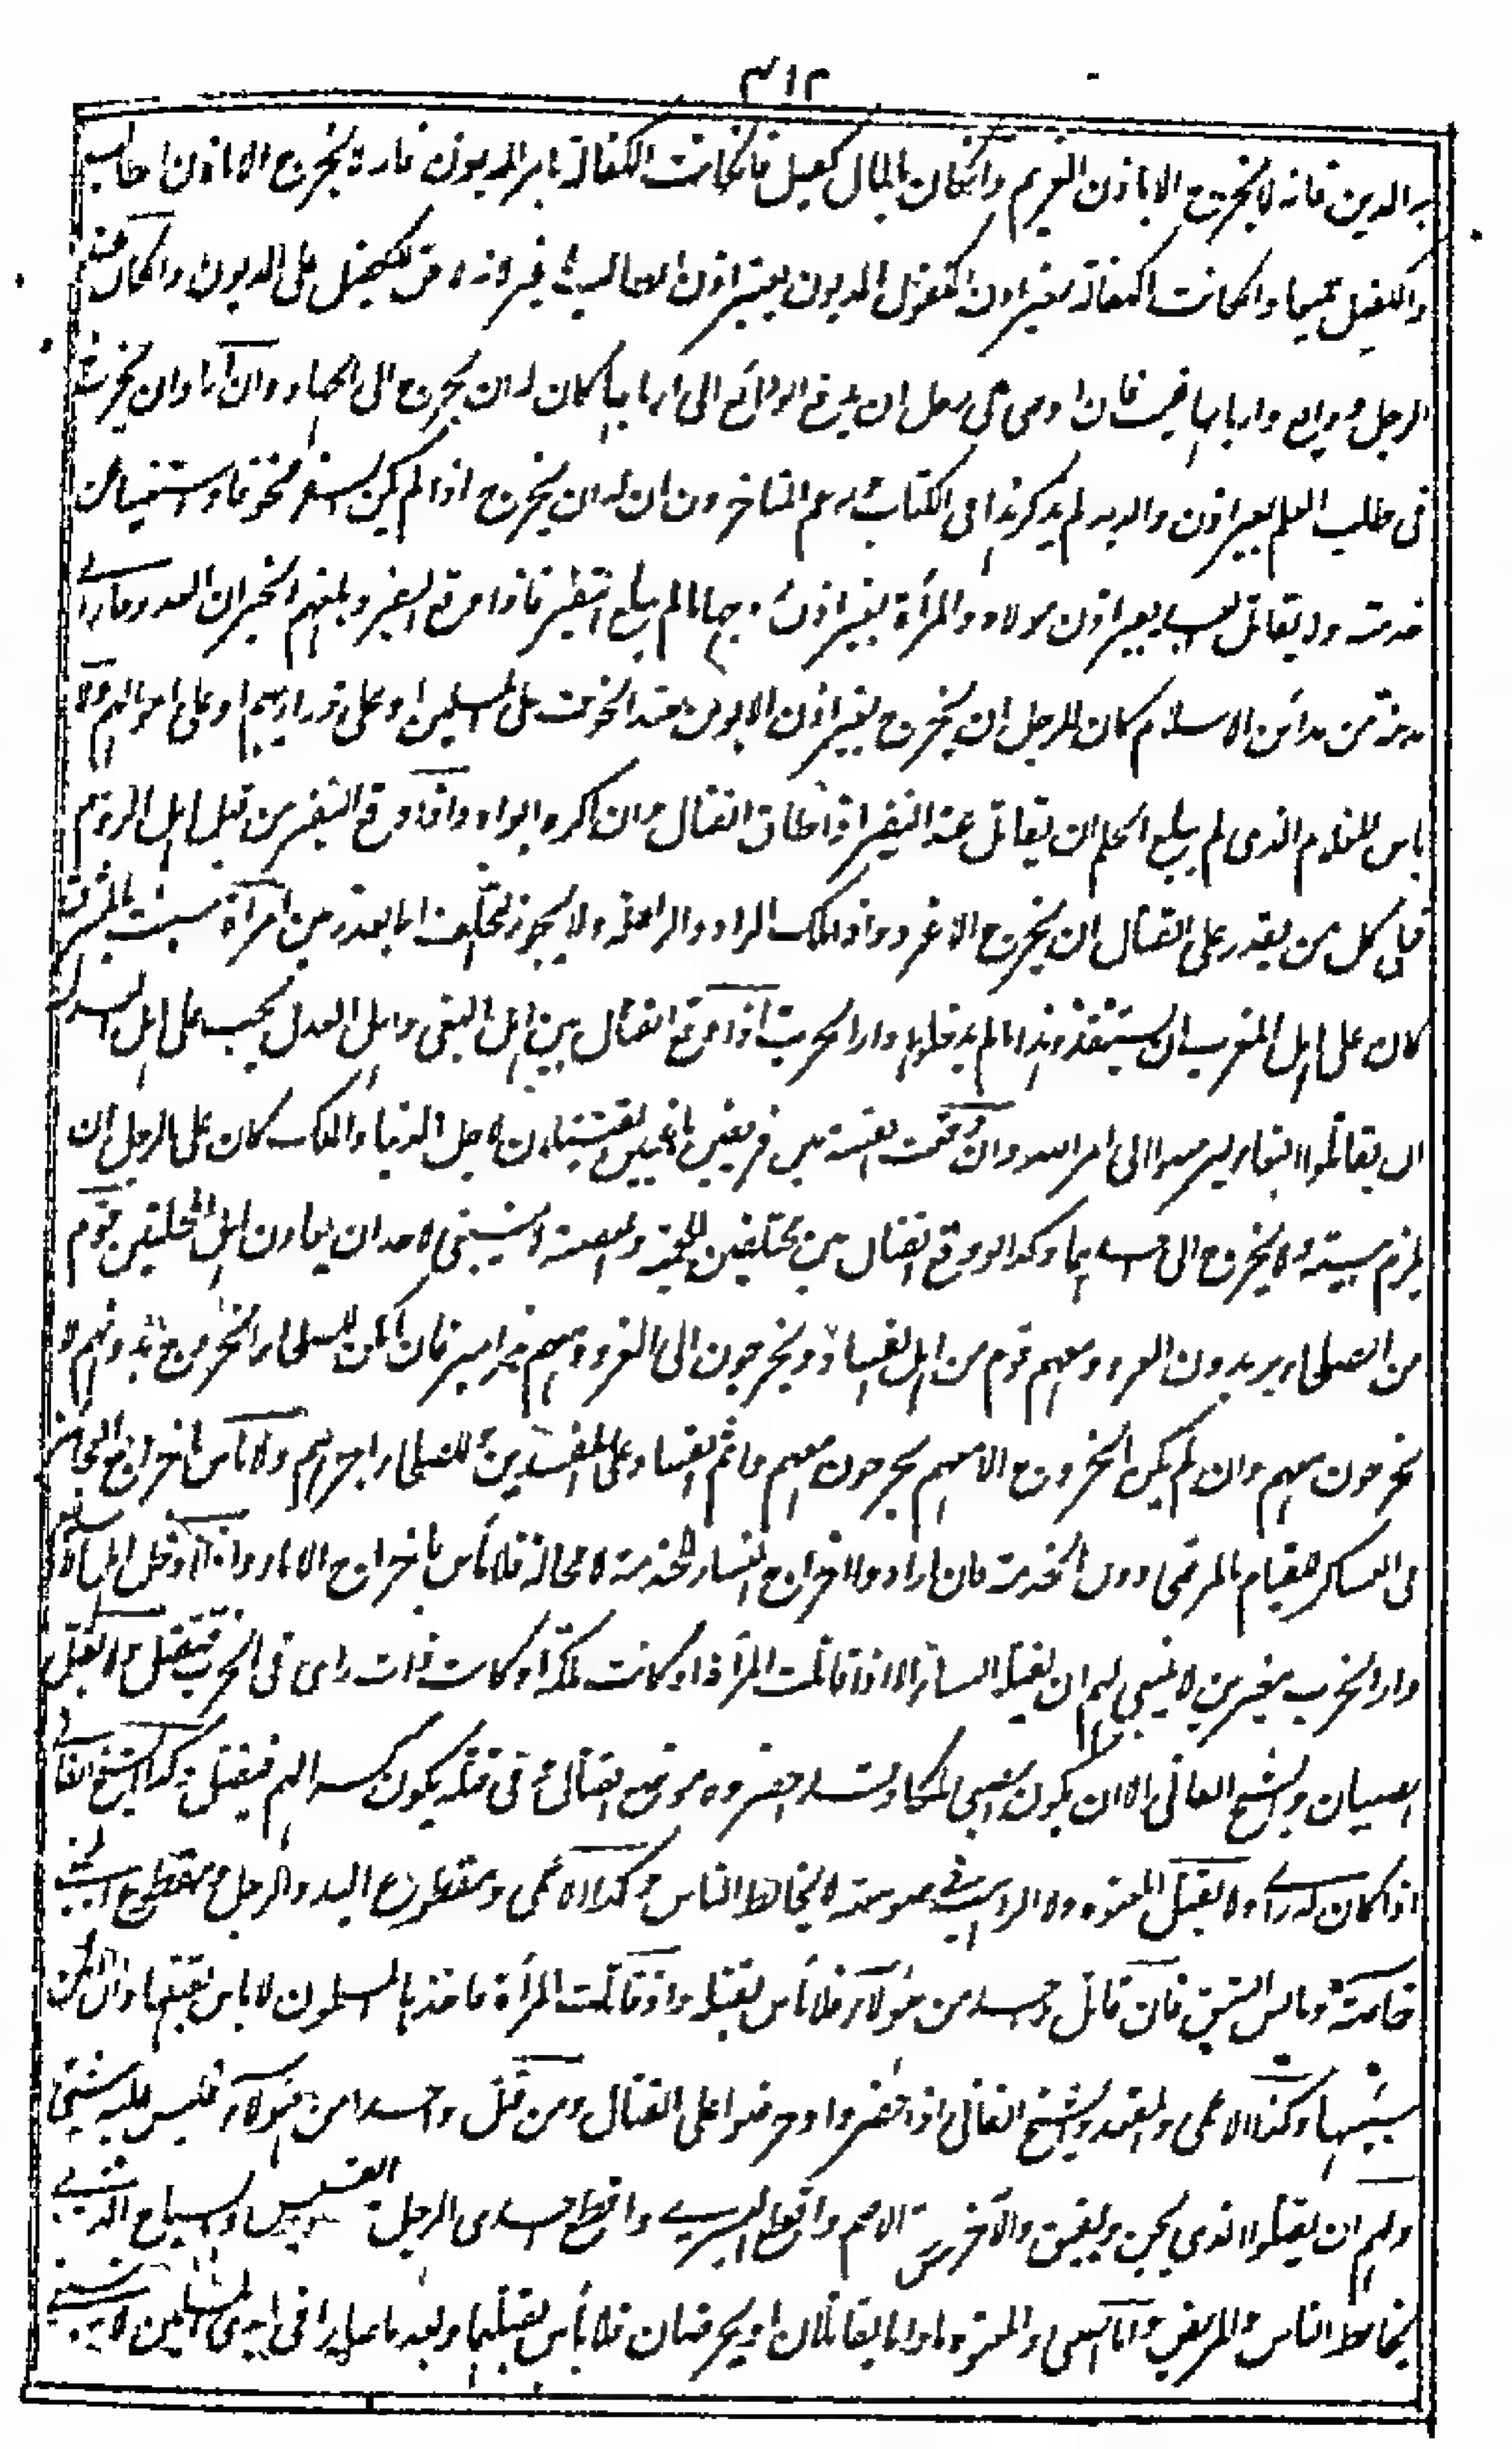 ٣١٢
به الدين فانه لا يخرج الا باذن الغريم وان كان بالمال كفيل فان كانت الكفالة بامر المديون فانه لا يخرج الا باذن الطالب
والكفيل جميعا وان كانت الكفالة بغير اذن المكفول المديون بغير اذن الطالب لا غير لانه لا حق للكفيل على المديون وان كان عند
الرجل ودايع واربابها غيب فان اوصى الى رجل ان يدفع الودائع الى اربابها كان له ان يخرج الى الجهاد وان اراد ان يخرج
فى طلب العلم بغير اذن والديه لم يذكر هذا فى الكتاب زعم المتاخرون ان له ان يخرج اذا لم يكن السفر مخوفا واستغنيا عن
خدمته ولا يقاتل العبد بغير اذن مولاه والمرأة بغير اذن زوجها ما لم يبلغ النفير فاذا وقع النفير وبلغهم الخبر ان العدو جاء الى
مدينة من مدائن الاسلام كان للرجل ان يخرج بغير اذن الابوين عند الخوف على المسلمين او على ذراريهم او على اموالهم ولا
باس للغلام الذى لم يبلغ الحلم ان يقاتل عند النفير اذا طاق القتال وان كره ابواه واذا وقع النفير من قبل اهل الروم
فعلى كل من يقدر على القتال ان يخرج الى الغزو واذا ملك الزاد والراحلة ولا يجوز التخلف الا بعذر بين امرأة سبيت بالمشرق
كان على اهل المغرب ان يستنقذوها ما لم يدخلوا دار الحرب اذا وقع القتال بين اهل البغى واهل العدل يجب على اهل العدل
ان يقاتلوا البغاة ليرجعوا الى امر الله وان وقعت الفتنة بين فريقين باغيين يقتتلون لاجل الدنيا والملك كان على الرجل ان
يلزم بيته ولا يخرج الى احدهما وكذا لو وقع القتال بين محلتين للحمية والعصبية لا ينبغى لاحد ان يعاون اهل المحلتين قوم
من الصلحاء يريدون الغزو ومعهم قوم من اهل الفساد ويخرجون الى الغزو ومعهم مزامير فان امكن للصلحاء الخروج بدونهم لا
يخرجون معهم وان لم يمكن الخروج الا معهم يخرجون معهم واثم الفساد على المفسدين وللصلحاء اجرهم ولا باس باخراج العجائز
فى العسكر للقيام بالمرضى ودون الخدمة فان ارادوا اخراج النساء للخدمة لا محالة فلا بأس باخراج الاماء واذا دخل المسلمون
دار الحرب مغيرين لا ينبغى لهم ان يقتلوا النساء الا اذا قاتلت المرأة او كانت ملكة او كانت ذات راى فى الحرب فتقتل ولا تقتل
الصبيان والشيخ الفانى الا ان يكون الصبى ملكا وقد احضروه موضع القتال وفى قتله يكون كسرا لهم فيقتل وكذا الشيخ الفانى
اذا كان له رأى ولا يقتل المعتوه ولا الراهب فى صومعته لا يخالط الناس وكذا الاعمى ومقطوع اليد والرجل ومقطوع اليمنى
خاصة ويابس الشق فان قاتل احد من هؤلاء فلا بأس بقتله واذا قاتلت المرأة فاخذها المسلمون لا باس بقتلها وان امكن
سبيها وكذا الاعمى والمقعد والشيخ الفانى اذا حضروا وحرضوا على القتال ومن قتل واحدا من هؤلاء فليس عليه شيئ
ولهم ان يقتلوا الذي يجن ويفيق والاخرس والاصم واقطع اليسرى واقطع احدى الرجلين القسيس والسياح الذى
يخالط الناس والمريض واما الصبى والمعتوه ماداما يقاتلان او يحرضان فلا بأس بقتلهما وبعد ما صارا فى ايدى المسلمين لا ينبغى